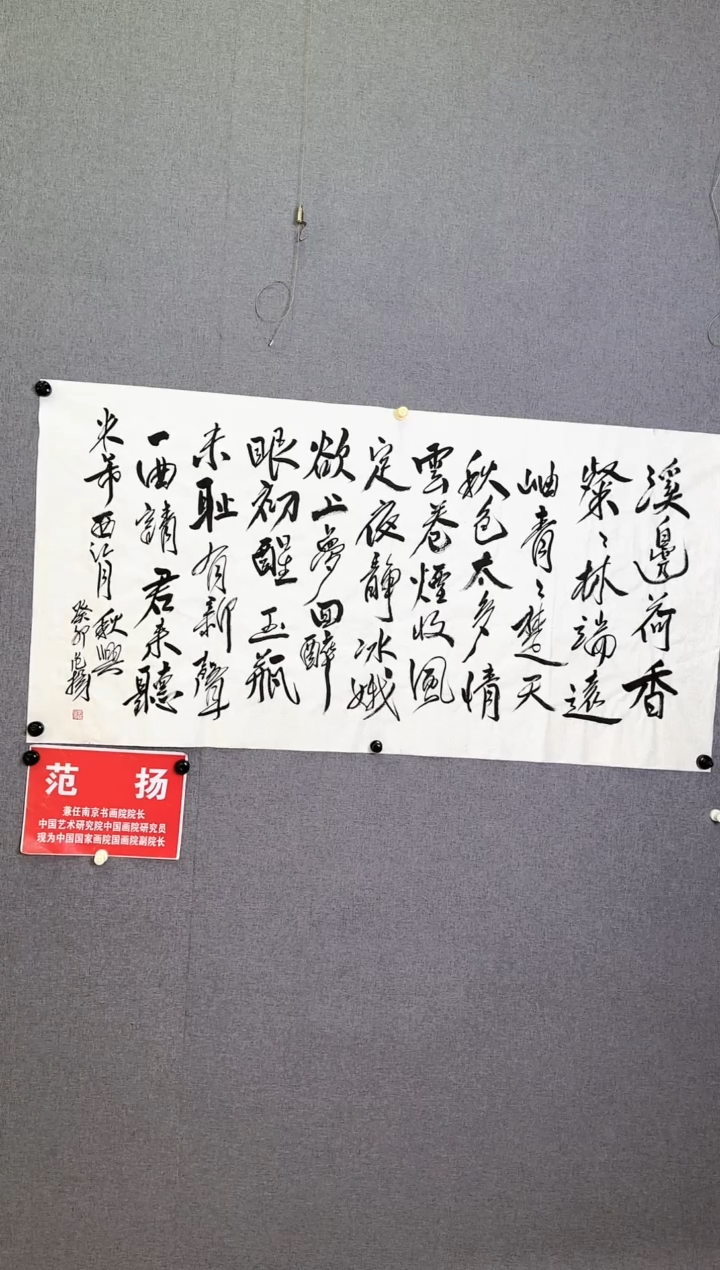 溪邊荷香
粲〻林端遠
岫青〻楚天
秋色太多情
雲卷煙收風
定夜靜冰娥
欲上夢回醉
眼初醒玉瓶
未耻有新聲
一曲請君来聽
米芾西江月
秋興
癸卯范揚
范 扬
兼任南京书画院院长
中国艺术研究院中国画院研究员
现为中国国家画院国画院副院长